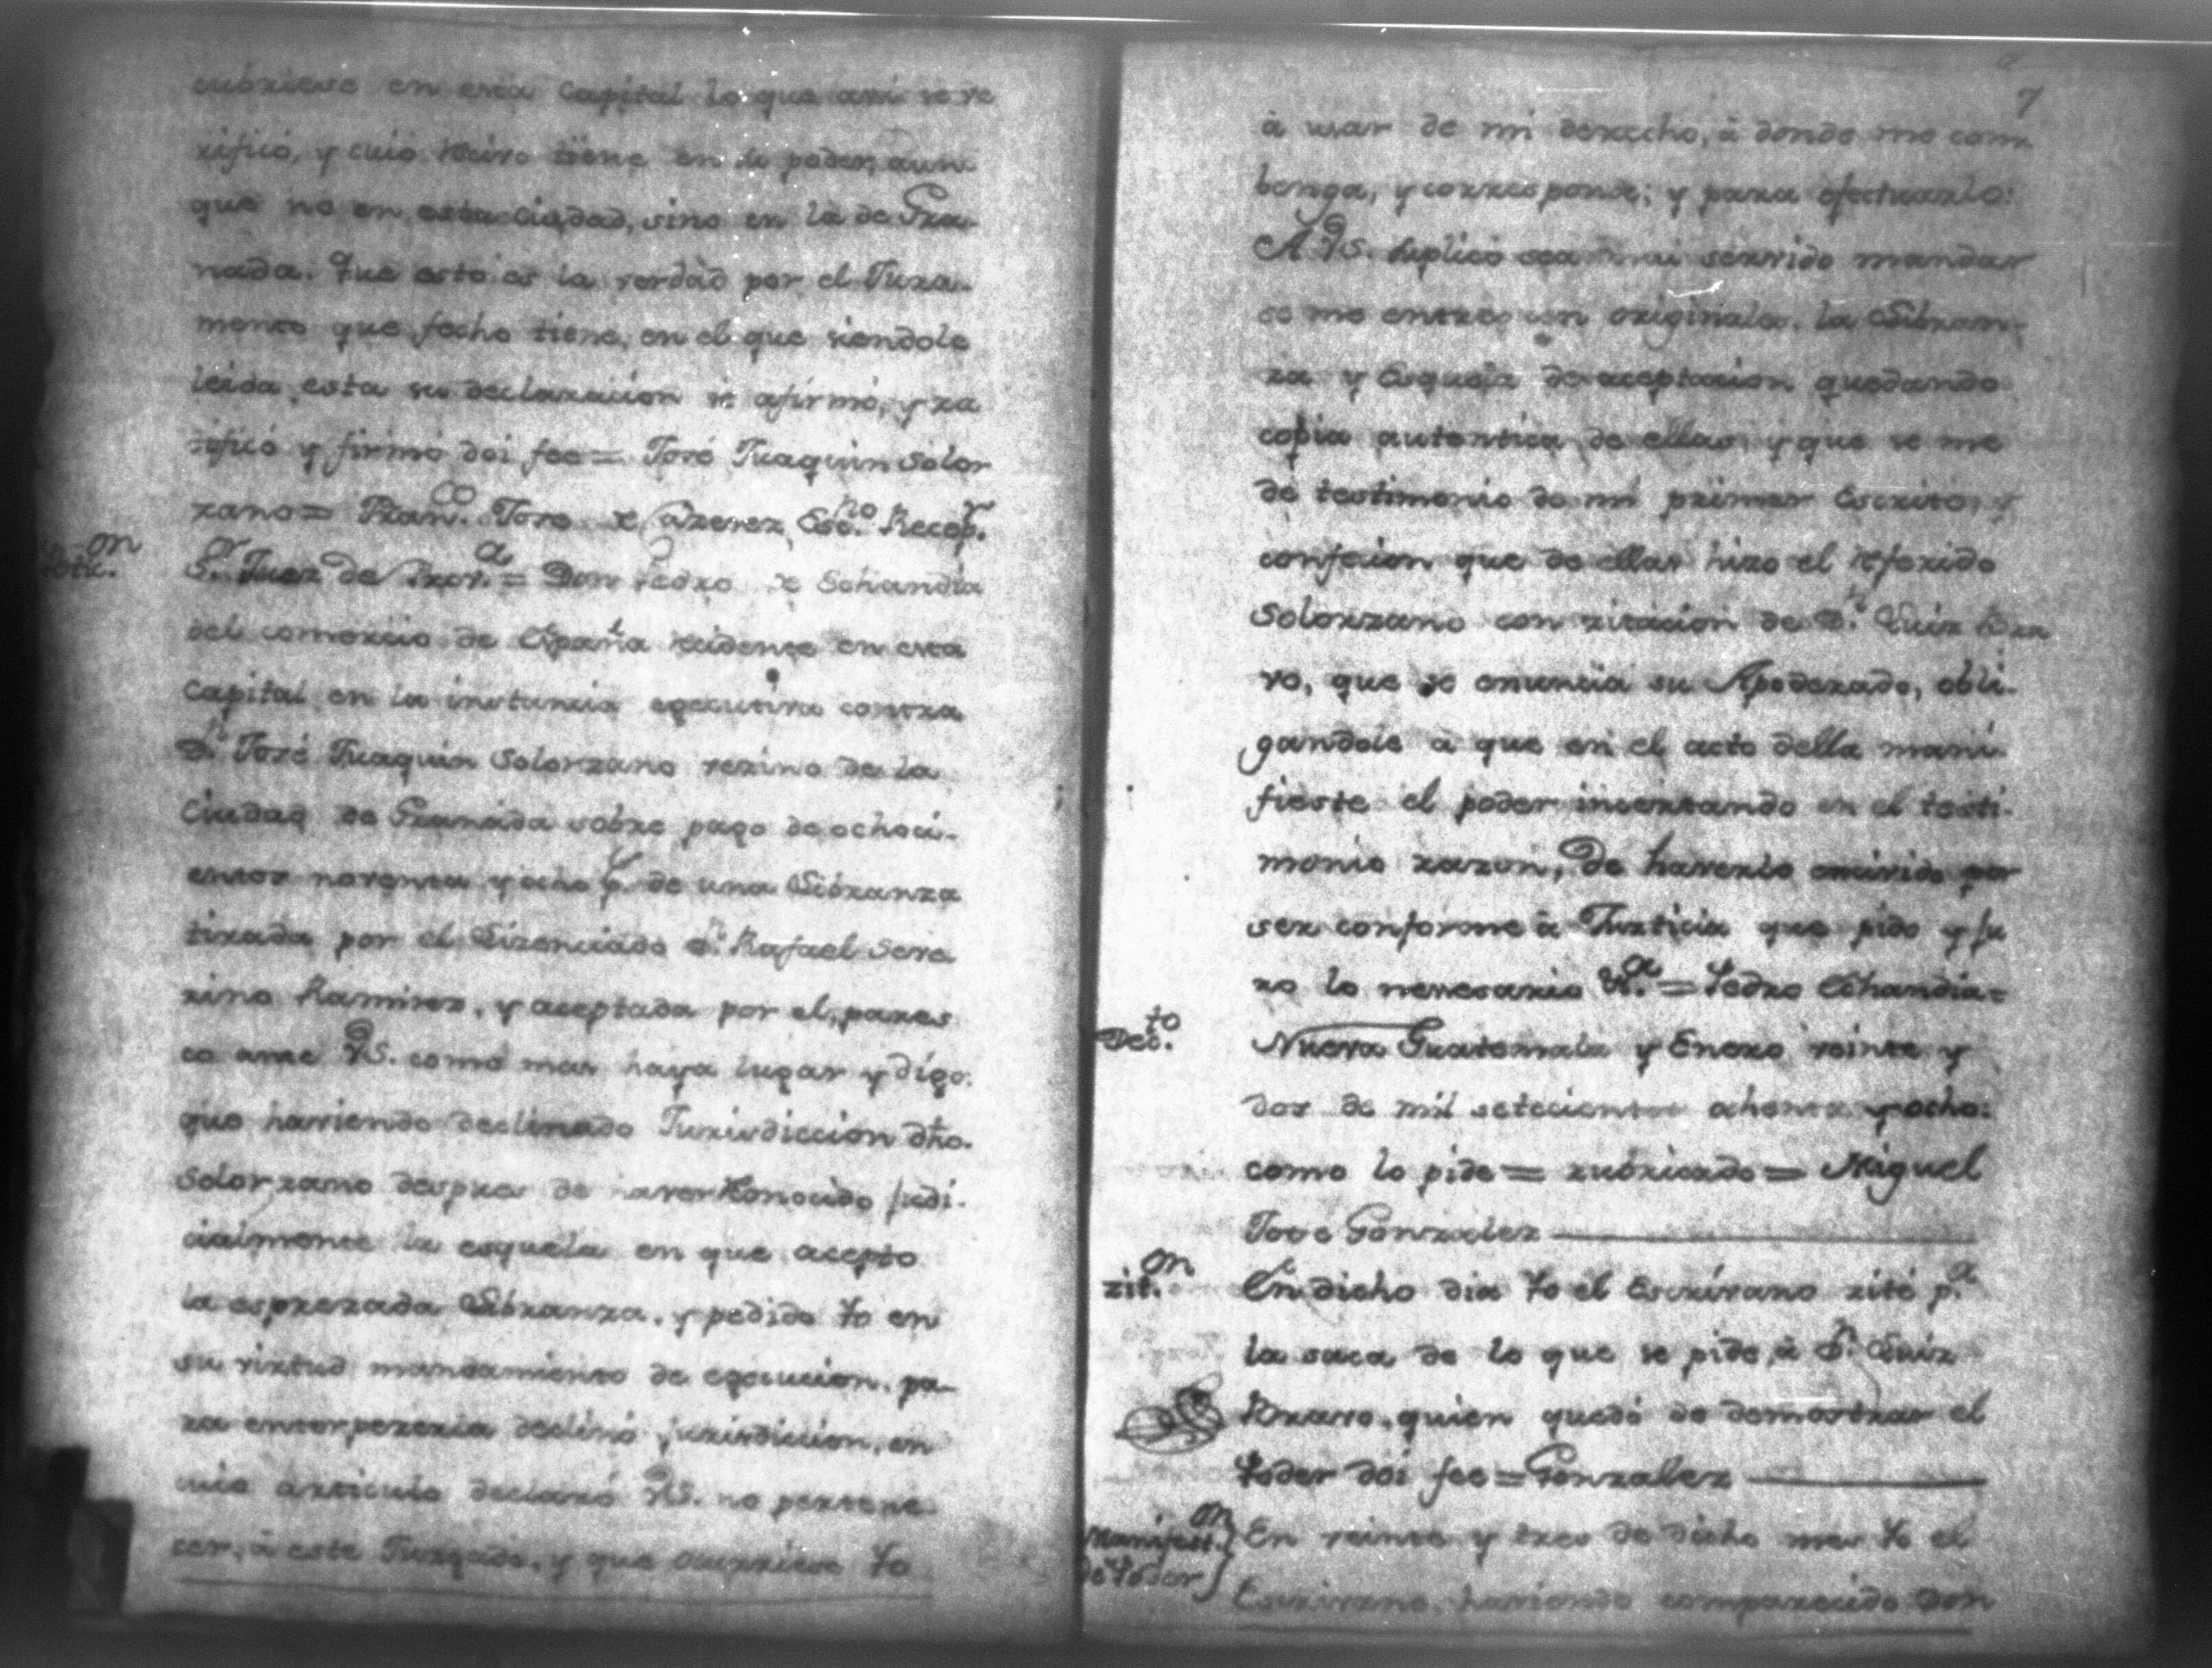 cubriese en esta Capital lo que asi se ve
rificó, y cuio recivo tiene en su poder, aun
que no en esta ciudad, sino en la de Gra-
nada. Que esto es la verdad por el Jura-
mento que fecho tiene, en el que siendole
leida esta su declaracion se afirmó, y ra
tificó y firmó doi fee = José Juaquin Solor
zano = Fran.co Jose de Caxerez, Esc.no Recep.r
Petic.on
S.or Juez de Prov.a = Don Pedro de Echandia
del comercio de España recidente en esta
Capital en la instancia egecutiva contra
D.n José Juaquin Solorzano vezino de la
Ciudad de Granada sobre pago de ochoci-
entos noventa y ocho p.s de una Libranza
tirada por el Lizenciado d.n Rafael Seve
rino Ramirez, y aceptada por el, pares
co ante VS. como mas haya lugar y digo:
que haviendo declinado Jurisdiccion dho.
Solorzano despues de haver Reconocido judi-
cialmente la esquela en que acepto
la esprezada Libranza, y pedido Yo en
su virtud mandamiento de egecucion, pa-
ra entorpezerla declinó jurisdiccion, en
cuio articulo declaró VS. no pertene-
cer, à este Juzgado, y que ocurriese Yo
7
à usar de mi derecho, à donde me com
benga, y corresponde; y para efectuarlo:
A VS. suplico sea mui servido mandar
se me entreguen originales la Libran-
za y Esquela de aceptacion quedando
copia autentica de ellas, y que se me
dé testimonio de mi primer Escrito, y
confecion que de ellas hizo el referido
Solorzano con zitacion de D.n Luiz Bra
vo, que se enuncia su Apoderado, obli-
gandole à que en el acto della mani-
fieste el poder incertando en el testi-
monio razon, de haverlo omirido por
ser conforme à Justicia que pido y ju
ro lo nenesario V.a = Pedro Echandia =
Dec.to
Nueva Guatemala y Enero veinte y
dos de mil setecientos ochenta y ocho:
como lo pide = rubricado = Miguel
Jose Gonzalez
zit.on
En dicho dia Yo el Escrivano zité p.a
la saca de lo que se pide, à D.n Luiz
Bravo, quien quedó de demostrar el
Poder doi fee = Gonzallez
Manifest.on
de Poder
En veinte y tres de dicho mes Yo el
Escrivano, haviendo comparecido Don